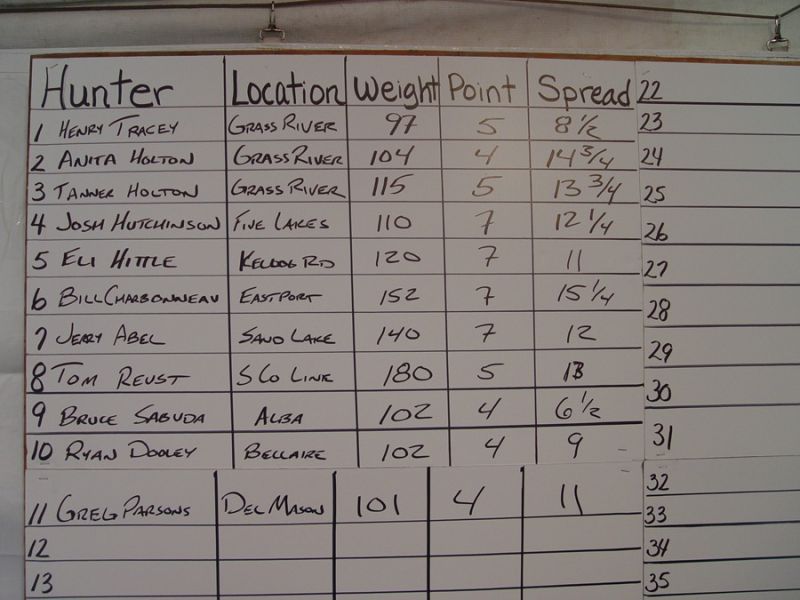 Hunter Location Weight Point Spread 22
1 HENRY TRACEY GRASS RIVER 97 5 8 1/2 23
2 ANITA HOLTON GRASS RIVER 104 4 14 3/4 24
3 TANNER HOLTON GRASS RIVER 115 5 13 3/4 25
4 JOSH HUTCHINSON FIVE LAKES 110 7 12 1/4 26
5 ELI HITTLE KELLOG RD 120 7 11 27
6 BILL CHARBONNEAU EASTPORT 152 7 15 1/4 28
7 JERRY ABEL SAND LAKE 140 7 12 29
8 TOM REUST S CO LINK 180 5 13 30
9 BRUCE SABUDA ALBA 102 4 6 1/2 31
10 RYAN DOOLEY BELLAIRE 102 4 9
11 GREG PARSONS DEL MASON 101 4 11 32
33
12 34
13 35